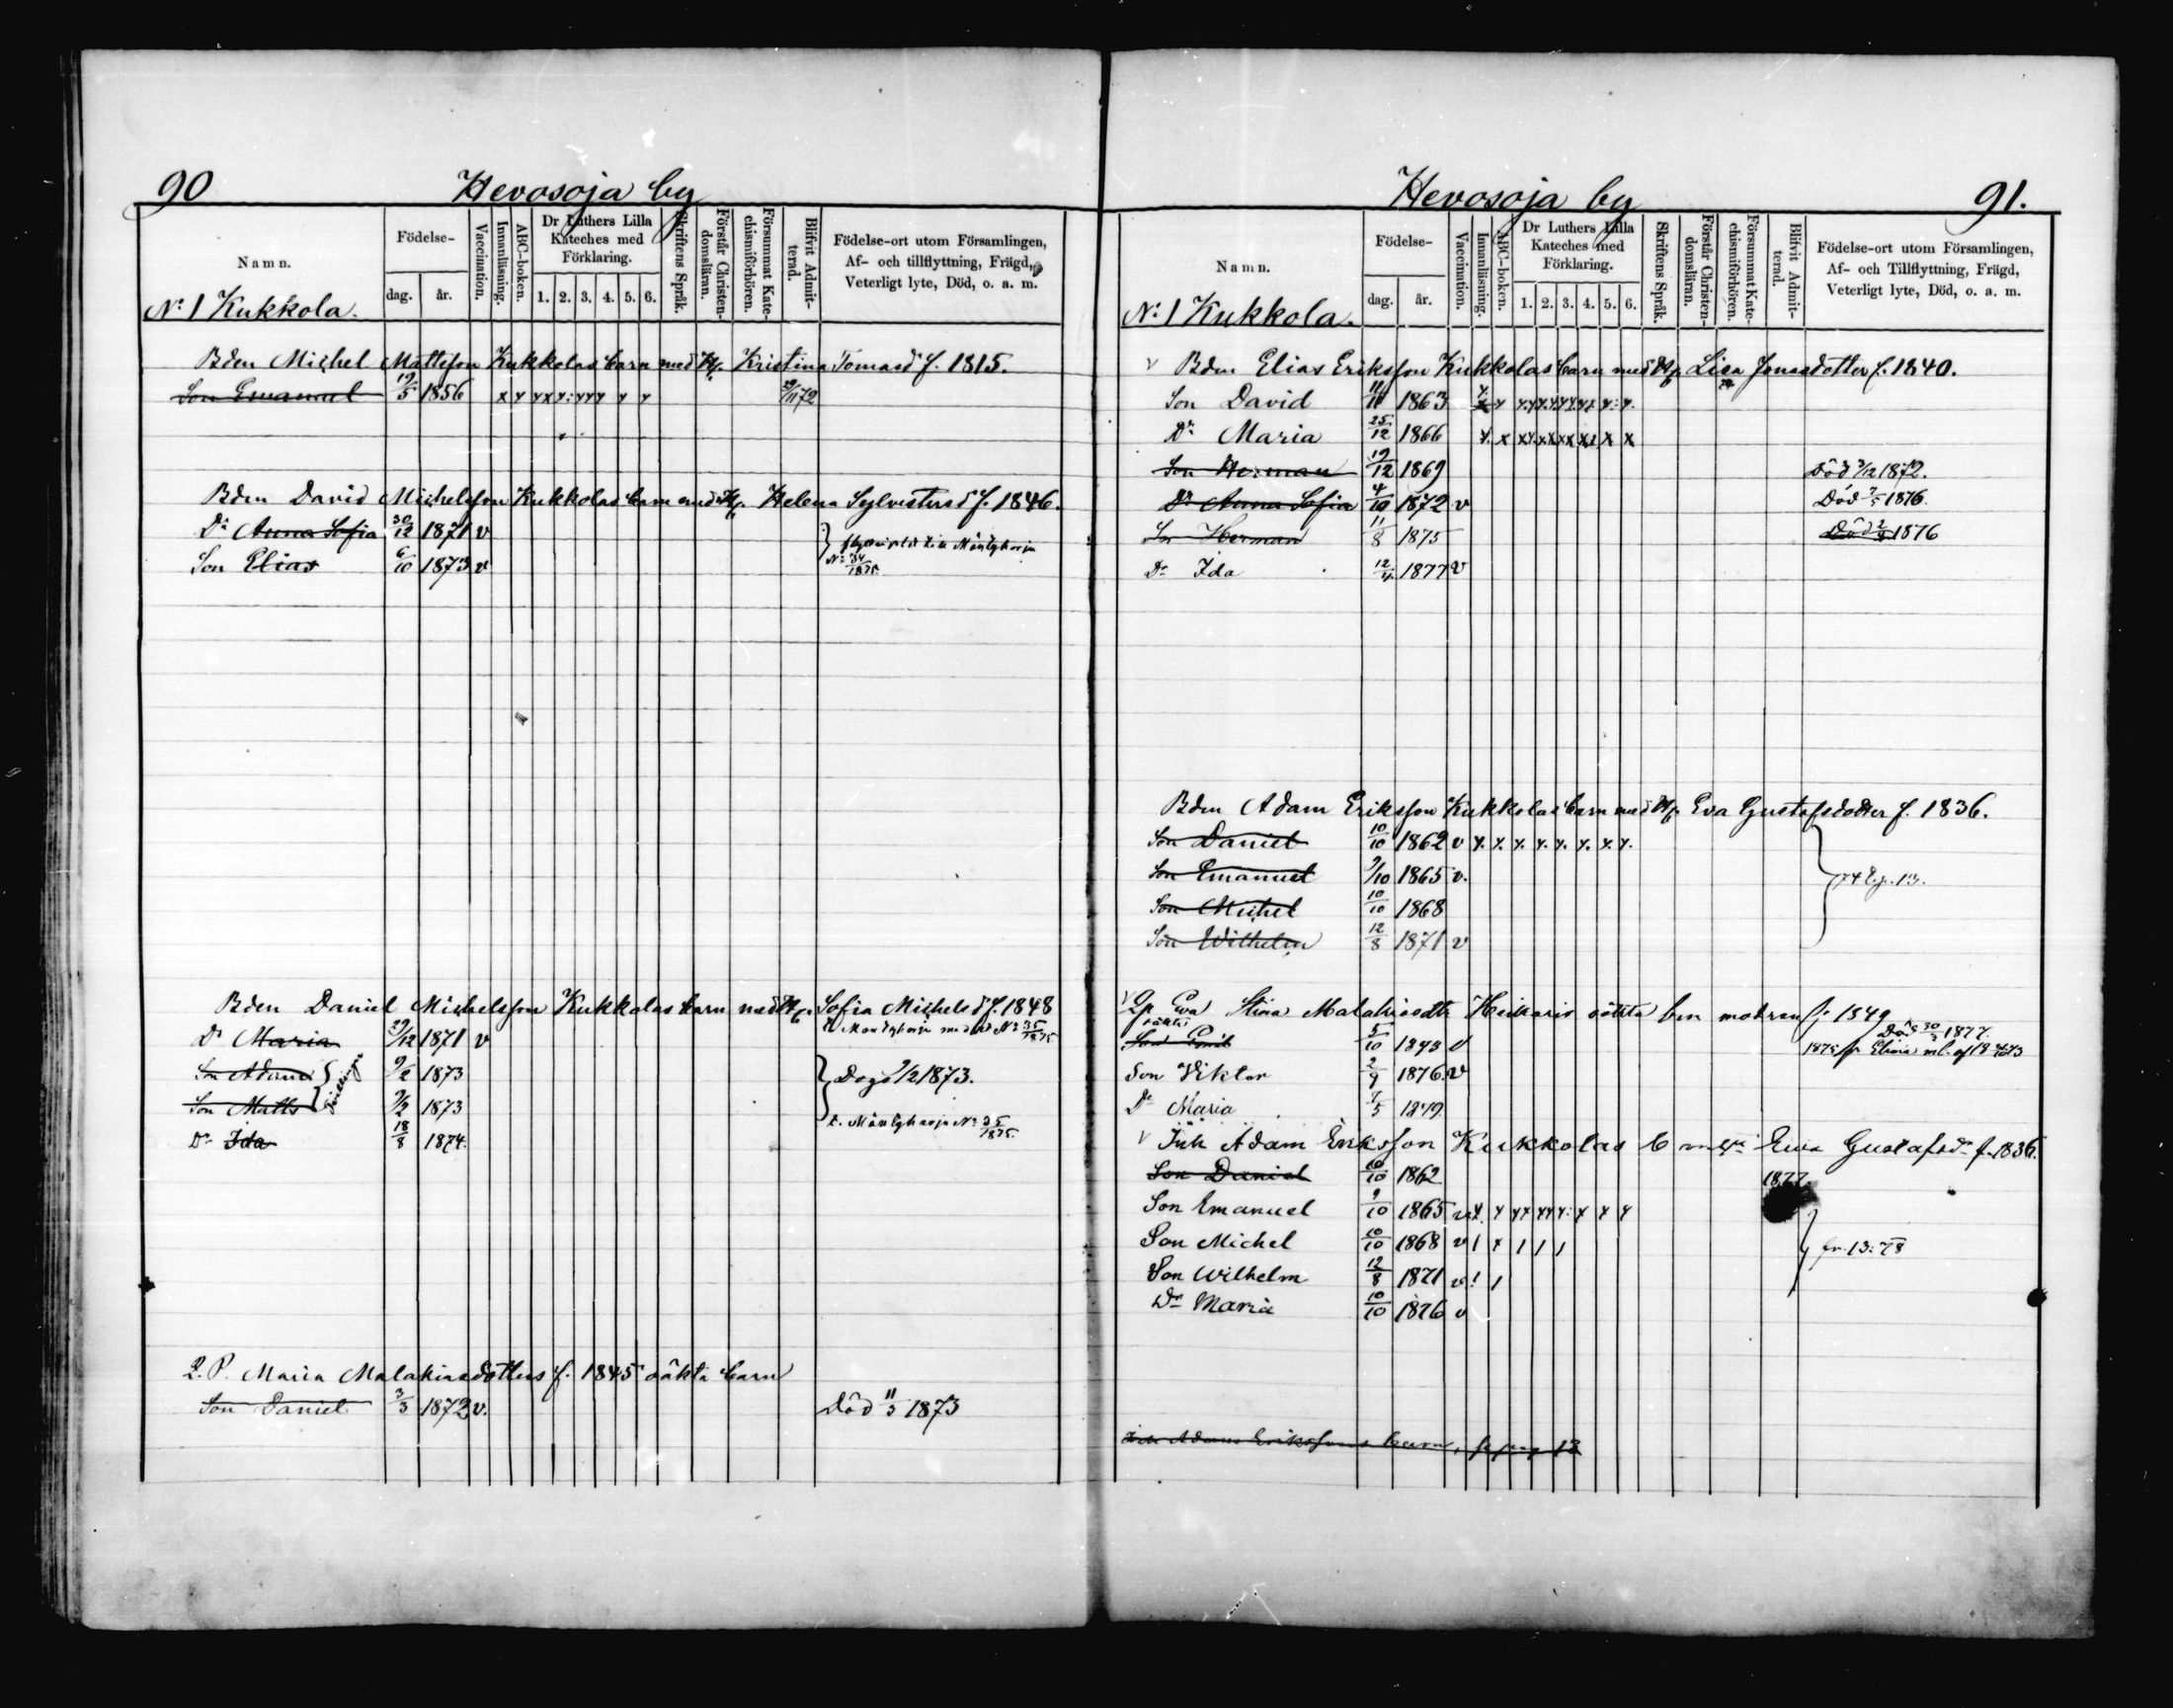 90
Hevosoja by
Namn.
Födelse-
dag.
år.
Vaccination.
Innanläsning.
ABC-boken.
Dr Luthers Lilla Kateches med Förklaring.
1. 2. 3. 4. 5. 6.
Skriftens Språk.
Förstår Christendomsläran.
Försummat Katechismiförhören.
Blifvit Admitterad.
Födelse-ort utom Församlingen,
Af- och tillflyttning, Frägd,
Veterligt lyte, Död, o. a. m.
N:1 Kukkola.
Bden Michel Mattsson Kukkolas barn med H. Kristina Tomasd f. 1815.
Son Emanuel 19/5 1856 29/11 72
Bden David Michelsson Kukkolas barn med H. Helena Sylvestersd f. 1846.
Dr Anna Sofia 30/12 1871 v Mäntyharju
Son Elias 6/10 1873 v N: 34/1875
Bden Daniel Michelsson Kukkolas barn med H. Sofia Michelsd f. 1848
Dr Maria 29/12 1871 v t. Mäntyharju med N: 35/1875
Son Adam 9/2 1873 Dogo 9/2 1873.
Son Matts 9/2 1873 Tvillingar
Dr Ida 18/8 1874. t. Mäntyharju N: 35/1875.
2. P. Maria Malakiasdotters f. 1845 oäkta barn
Son Daniel 3/3 1872 v. Död 11/3 1873
Hevosoja by
91.
Namn.
Födelse-
dag.
år.
Vaccination.
Innanläsning.
ABC-boken.
Dr Luthers Lilla Kateches med Förklaring.
1. 2. 3. 4. 5. 6.
Skriftens Språk.
Förstår Christendomsläran.
Försummat Katechismiförhören.
Blifvit Admitterad.
Födelse-ort utom Församlingen,
Af- och Tillflyttning, Frägd,
Veterligt lyte, Död, o. a. m.
N:1 Kukkola.
v Bden Elias Eriksson Kukkolas barn med H. Lisa Jonasdotter f. 1840.
Son David 11/11 1863
Dr Maria 25/12 1866
Son Herman 19/12 1869 Död 3/12 1872.
Dr Anna Sofia 4/10 1872 v Död 7/5 1876.
Son Herman 11/8 1875 Död 2/4 1876
Dr Ida 12/4 1877 v
Bden Adam Eriksson Kukkolas barn med H. Eva Gustafsdotter f. 1836.
Son Daniel 10/10 1862 v
Son Emanuel 9/10 1865 v. 74 13.
Son Michel 10/10 1868
Son Wilhelm 12/8 1871 v
v Qp Eva Stina Malakiasdtr Heikaris oäkta modren f. 1849
Son Emil 5/10 1873 v Död 30/3 1877.
Son Viktor 2/9 1876. v
Dr Maria 7/5 1879
v Inh Adam Eriksson Kukkolas b m H. Ewa Gustafsdr f. 1836.
Son Daniel 10/10 1862 1877
Son Emanuel 9/10 1865 v
Son Michel 10/10 1868 v fr. 13: 78
Son Wilhelm 12/8 1871 v
Dr Maria 10/10 1876 v
Inh Adam Erikssons barn, se pag 13